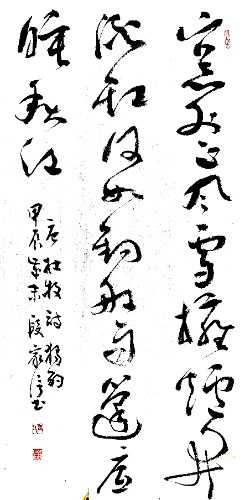 窗外正风雪擁爐开
酒缸何如釣船雨篷底
睡秋江
唐杜牧詩獨酌
甲辰岁末段家书